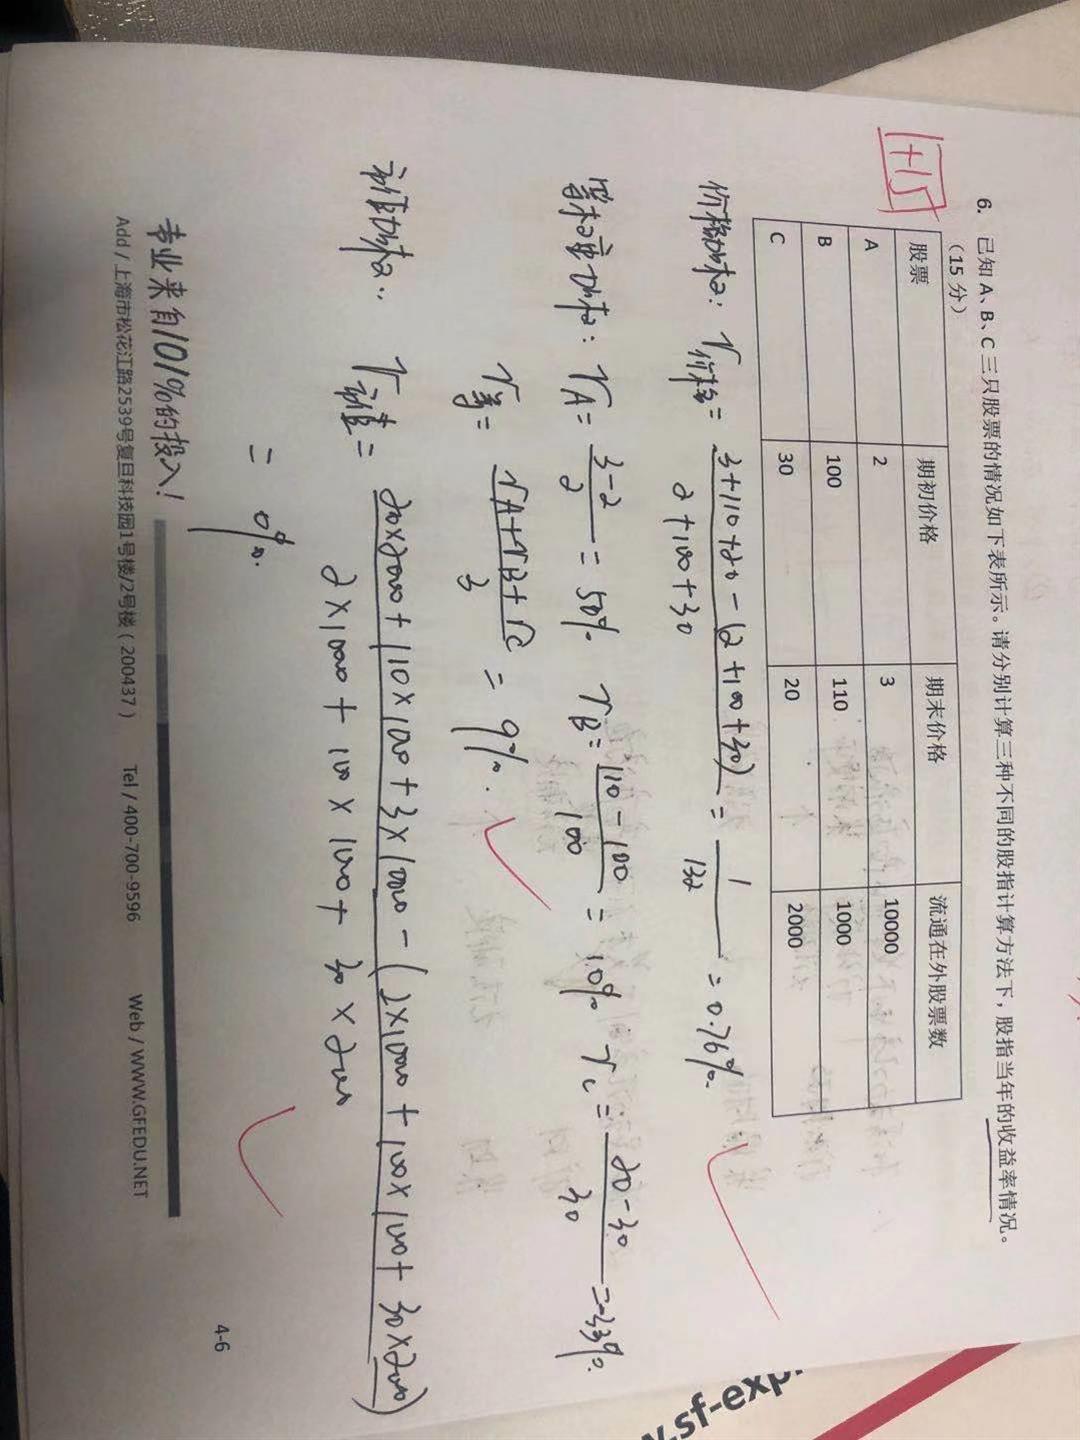 +15
6. 已知 A、B、C 三只股票的情况如下表所示。请分别计算三种不同的股指计算方法下，股指当年的收益率情况。
（15 分）
股票 期初价格 期末价格 流通在外股票数
A 2 3 10000
B 100 110 1000
C 30 20 2000
价格加权: r价格 = (3+110+20-(2+100+30))/(2+100+30) = 1/132 = 0.76%
等权重加权: rA = (3-2)/2 = 50% rB = (110-100)/100 = 10% rc = (20-30)/30 = -33%
r等 = (rA+rB+rC)/3 = 9%.
市值加权: r市值 = (20×2000+110×1000+3×10000-(2×10000+100×1000+30×2000))/(2×10000+100×1000+30×2000)
= 0%.
专业来自101%的投入!
Add / 上海市松花江路2539号复旦科技园1号楼/2号楼 ( 200437 ) Tel / 400-700-9596 Web / WWW.GFEDU.NET
4-6
.sf-exp